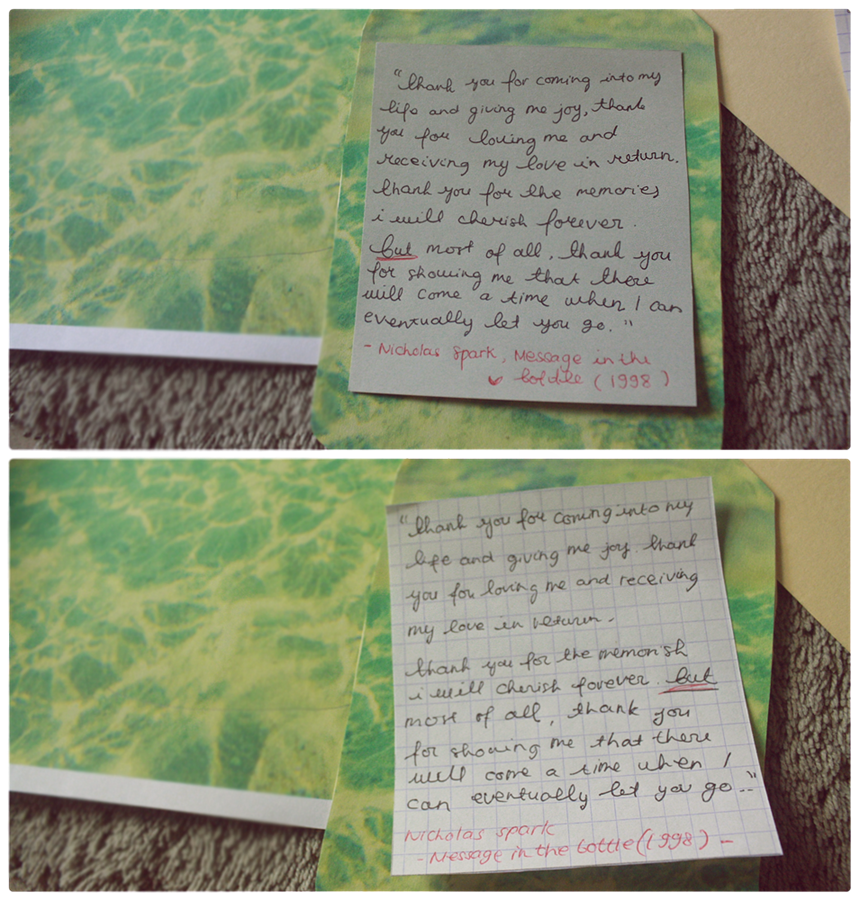 "thank you for coming into my
life and giving me joy, thank
you for loving me and
receiving my love in return.
thank you for the memories
i will cherish forever.
but most of all, thank you
for showing me that there
will come a time when I can
eventually let you go."
- Nicholas Spark, Message in the
bottle (1998)
"thank you for coming into my
life and giving me joy. thank
you for loving me and receiving
my love in return.
thank you for the memorish
i will cherish forever. but
most of all, thank you
for showing me that there
will come a time when I
can eventually let you go.."
Nicholas spark
- Message in the bottle (1998) -